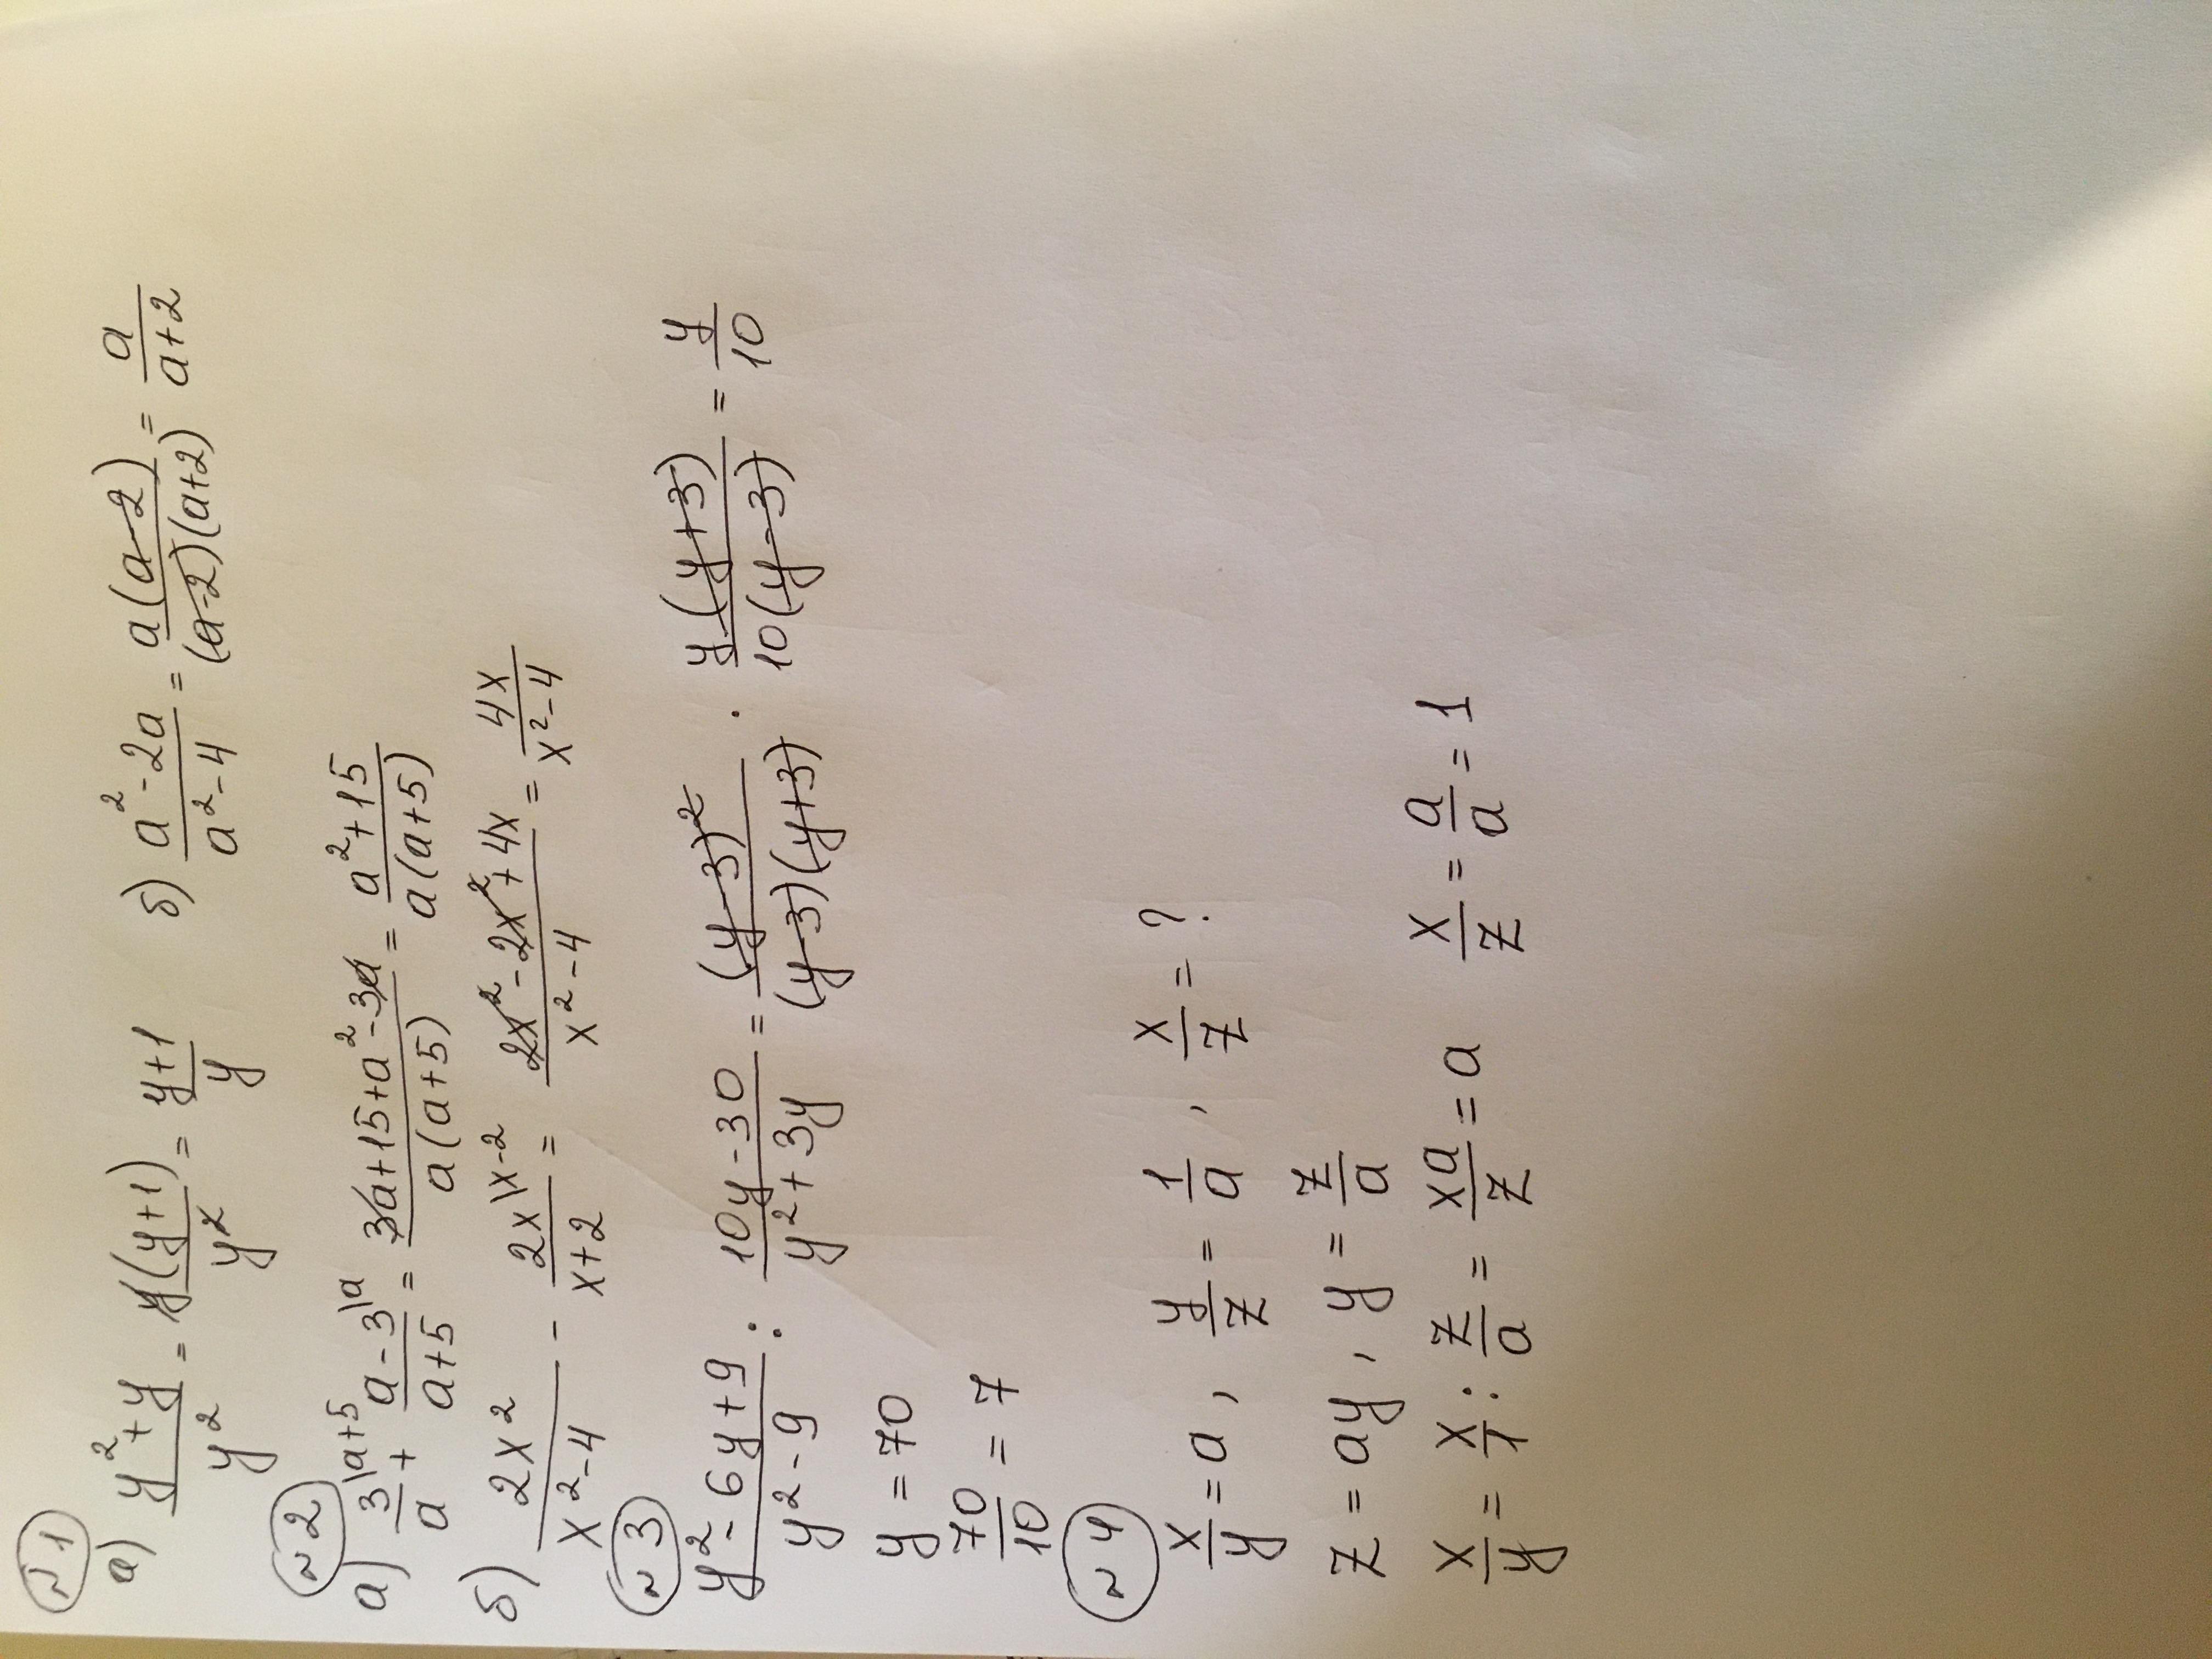 №1
а) (y²+y)/y² = y(y+1)/y² = (y+1)/y   б) (a²-2a)/(a²-4) = a(a-2)/((a-2)(a+2)) = a/(a+2)
№2
а) 3/a \a+5 + (a-3)/(a+5) \a = (3a+15+a²-3a)/(a(a+5)) = (a²+15)/(a(a+5))
б) 2x²/(x²-4) - 2x/(x+2) \x-2 = (2x²-2x²+4x)/(x²-4) = 4x/(x²-4)
№3
(y²-6y+9)/(y²-9) : (10y-30)/(y²+3y) = (y-3)²/((y-3)(y+3)) · y(y+3)/(10(y-3)) = y/10
y=70
70/10 = 7
№4
x/y = a, y/z = 1/a, x/z = ?
z = ay, y = z/a
x/y = x/1 : z/a = xa/z = a   x/z = a/a = 1